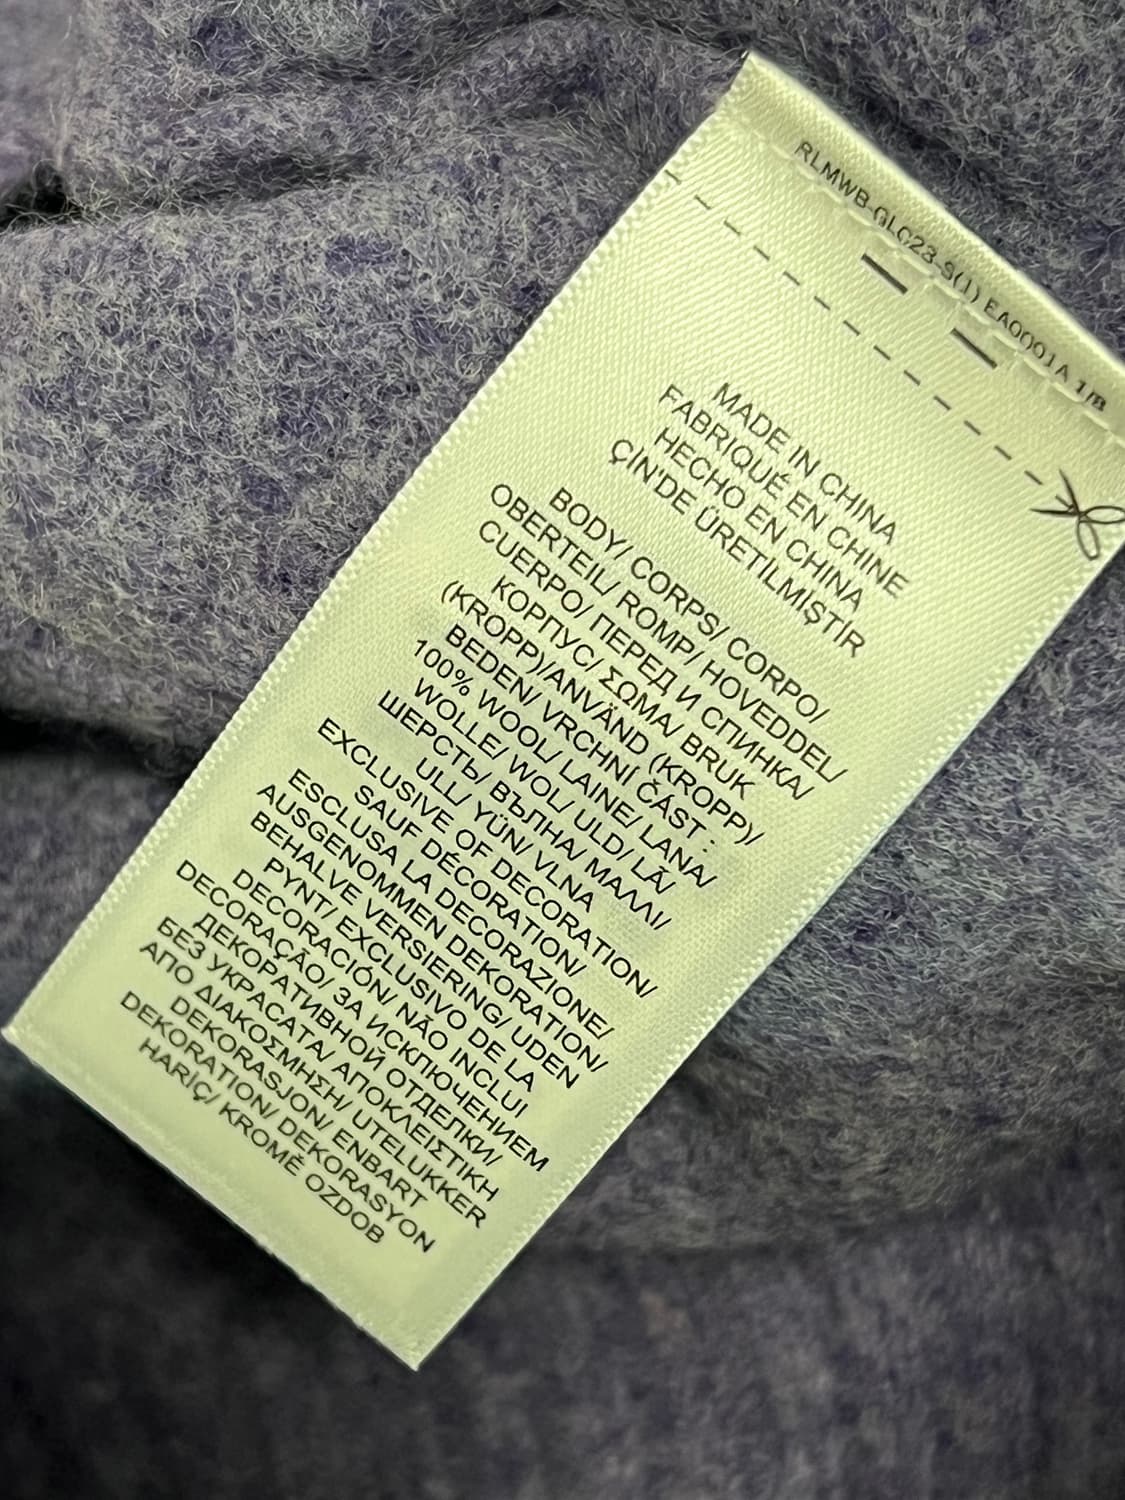 RLMWB-GLC23-S(1) EA0001A 1/8
MADE IN CHINA
FABRIQUÉ EN CHINE
HECHO EN CHINA
ÇİN'DE ÜRETİLMİŞTİR
BODY/ CORPS/ CORPO/
OBERTEIL/ ROMP/ HOVEDDEL/
CUERPO/ ПЕРЕД И СПИНКА/
КОРПУС/ ΣΩΜΑ/ BRUK
(KROPP)/ANVÄND (KROPP)/
BEDEN/ VRCHNÍ ČÁST :
100% WOOL/ LAINE/ LANA/
WOLLE/ WOL/ ULD/ LÃ/
ШЕРСТЬ/ ВЪЛНА/ ΜΑΛΛΙ/
ULL/ YÜN/ VLNA
EXCLUSIVE OF DECORATION/
SAUF DÉCORATION/
ESCLUSA LA DECORAZIONE/
AUSGENOMMEN DEKORATION/
BEHALVE VERSIERING/ UDEN
PYNT/ EXCLUSIVO DE LA
DECORACIÓN/ NÃO INCLUI
DECORAÇÃO/ ЗА ИСКЛЮЧЕНИЕМ
ДЕКОРАТИВНОЙ ОТДЕЛКИ/
БЕЗ УКРАСАТА/ ΑΠΟΚΛΕΙΣΤΙΚΗ
ΑΠΟ ΔΙΑΚΟΣΜΗΣΗ/ UTELUKKER
DEKORASJON/ ENBART
DEKORATION/ DEKORASYON
HARİÇ/ KROMĚ OZDOB